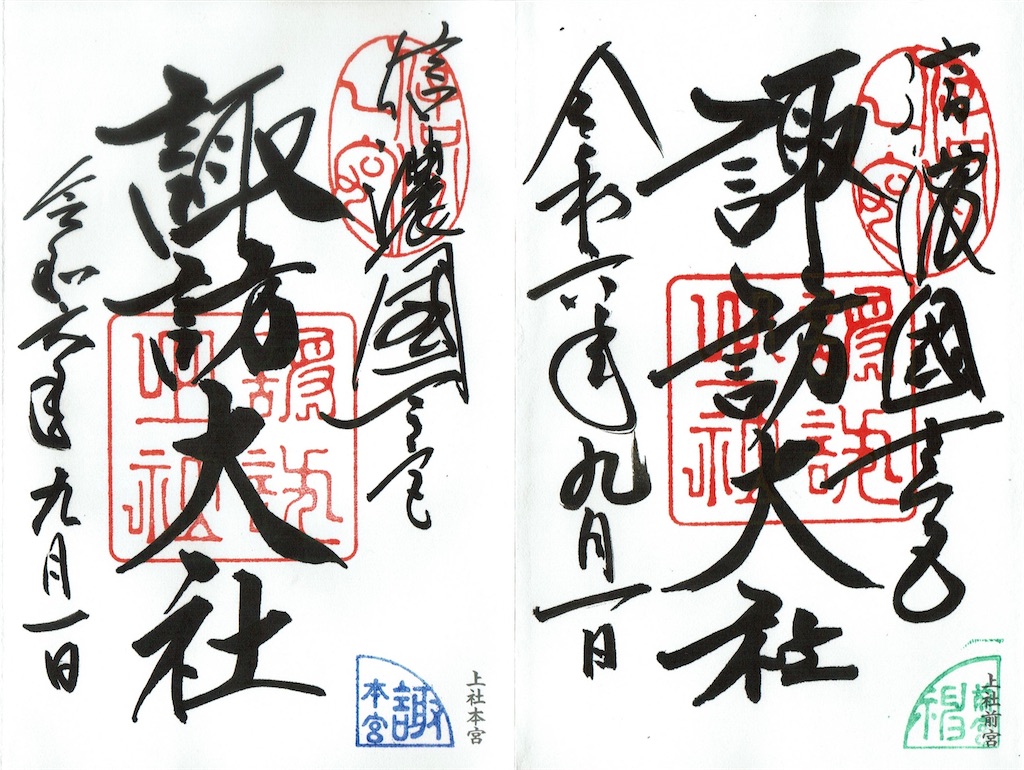 信濃國一宮
諏訪大社
令和六年九月一日
上社本宮
諏
本宮
信濃國一宮
諏訪大社
令和六年九月一日
上社前宮